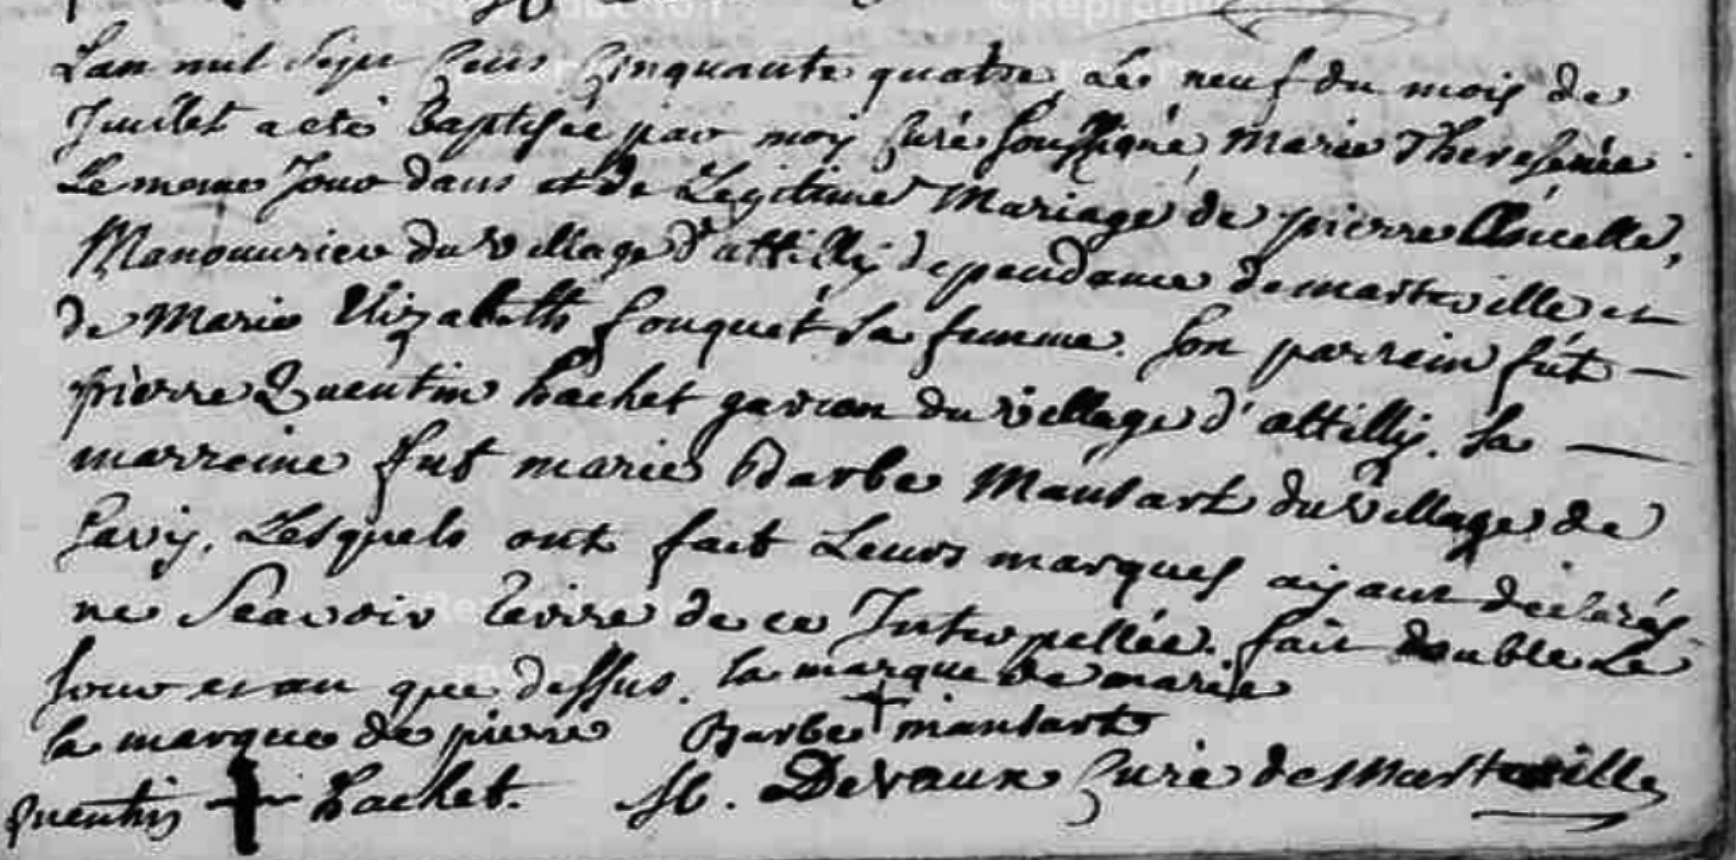 Lan mil Sept Cens Cinquante quatre, Le neuf du mois de
Juillet a eté Baptisée par moy Curé Soussigné, Marie Therese née
Le meme Jour dans et de Legitime Mariage de pierre
Manouvrier du village d'attilly dependance de marteville et
de Marie Elizabeth fouquet Sa femme. Son parrein fút —
pierre Quentin hachet garcon du village d'attilly. Sa —
marreine fut marie Barbe Mansart du village de
Savy. Lesquels ont fait Leurs marques aÿant déclarés
ne Scavoir Ecrire de ce Interpellés. fait double Le
Jour et an que dessus. la marque de marie
la marque de pierre Barbe + mansart
quentin + hachet. Devaux Curé de Marteville